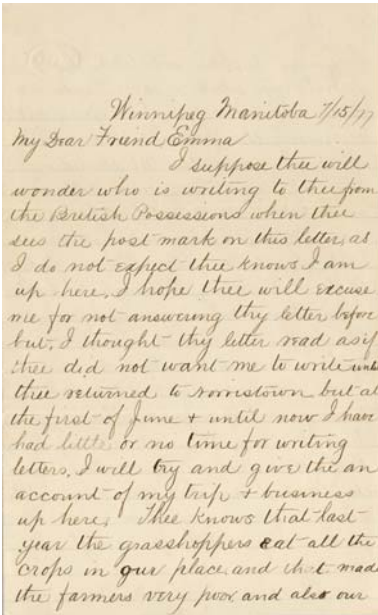 Winnipeg Manitoba 7/15/77
My Dear Friend Emma
I suppose thee will
wonder who is writing to thee from
the British Possessions when thee
sees the post mark on this letter, as
I do not expect thee knows I am
up here, I hope thee will excuse
me for not answering thy letter before
but, I thought thy letter read as if
thee did not want me to write until
thee returned to Norristown but at
the first of June + until now I have
had little or no time for writing
letters, I will try and give the an
account of my trip + business
up here. Thee knows that last
year the grasshoppers eat all the
crops in our place and that made
the farmers very poor and also our